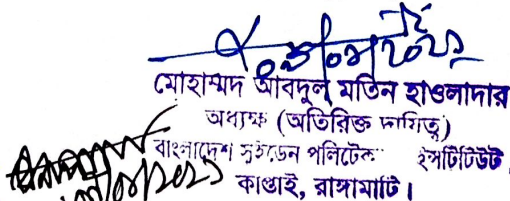 মোহাম্মদ আবদুল মতিন হাওলাদার
অধ্যক্ষ (অতিরিক্ত দায়িত্ব)
বাংলাদেশ সুইডেন পলিটেক ইন্সটিটিউট
কাপ্তাই, রাঙ্গামাটি।